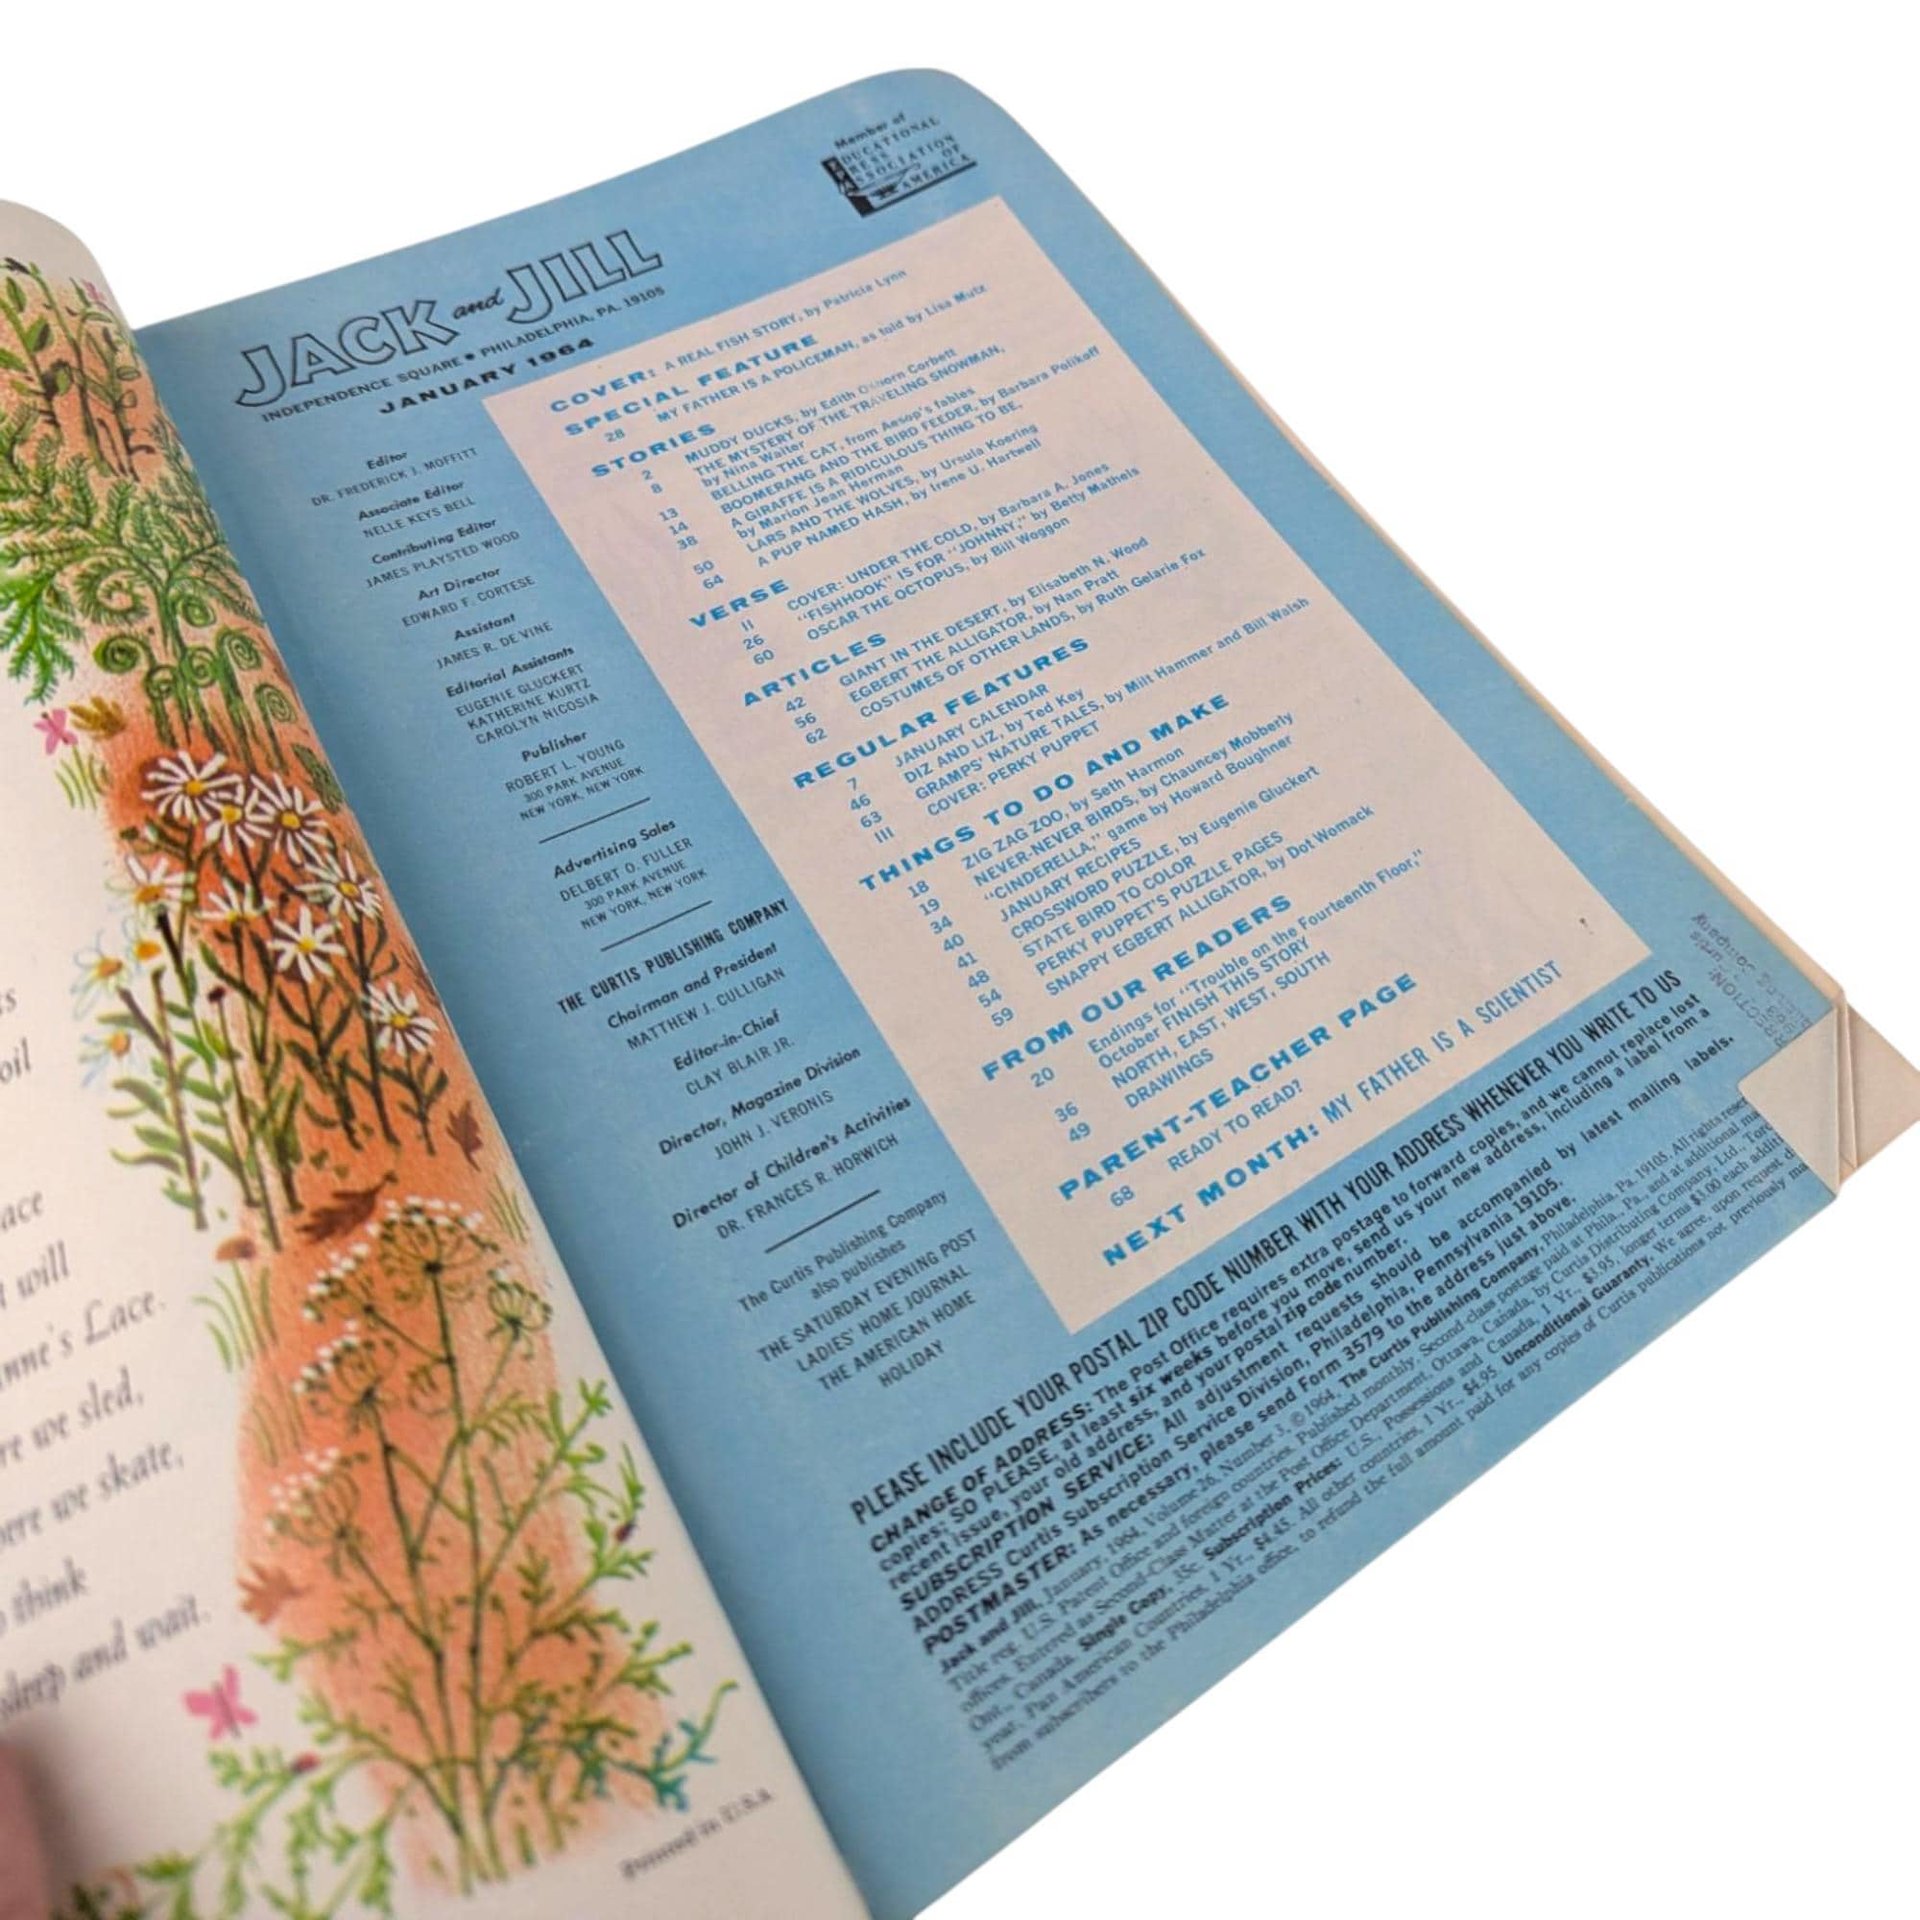 oil
ace
will
nne's Lace.
re we sled,
ere we skate,
think
sleep and wait.
Printed in U.S.A.
Member of
EDUCATIONAL
PRESS
ASSOCIATION
OF
AMERICA
JACK and JILL
INDEPENDENCE SQUARE • PHILADELPHIA, PA. 19105
JANUARY 1964
Editor
DR. FREDERICK J. MOFFITT
Associate Editor
NELLE KEYS BELL
Contributing Editor
JAMES PLAYSTED WOOD
Art Director
EDWARD F. CORTESE
Assistant
JAMES R. DE VINE
Editorial Assistants
EUGENIE GLUCKERT
KATHERINE KURTZ
CAROLYN NICOSIA
Publisher
ROBERT L. YOUNG
300 PARK AVENUE
NEW YORK, NEW YORK
Advertising Sales
DELBERT O. FULLER
300 PARK AVENUE
NEW YORK, NEW YORK
THE CURTIS PUBLISHING COMPANY
Chairman and President
MATTHEW J. CULLIGAN
Editor-in-Chief
CLAY BLAIR JR.
Director, Magazine Division
JOHN J. VERONIS
Director of Children's Activities
DR. FRANCES R. HORWICH
The Curtis Publishing Company
also publishes
THE SATURDAY EVENING POST
LADIES' HOME JOURNAL
THE AMERICAN HOME
HOLIDAY
COVER: A REAL FISH STORY, by Patricia Lynn
SPECIAL FEATURE
28 MY FATHER IS A POLICEMAN, as told by Lisa Mutz
STORIES
2 MUDDY DUCKS, by Edith Osborn Corbett
8 THE MYSTERY OF THE TRAVELING SNOWMAN,
by Nina Walter
13 BELLING THE CAT, from Aesop's fables
14 BOOMERANG AND THE BIRD FEEDER, by Barbara Polikoff
38 A GIRAFFE IS A RIDICULOUS THING TO BE,
by Marion Jean Herman
50 LARS AND THE WOLVES, by Ursula Koering
64 A PUP NAMED HASH, by Irene U. Hartwell
VERSE
II COVER: UNDER THE COLD, by Barbara A. Jones
26 "FISHHOOK" IS FOR "JOHNNY," by Betty Matheis
60 OSCAR THE OCTOPUS, by Bill Woggon
ARTICLES
42 GIANT IN THE DESERT, by Elisabeth N. Wood
56 EGBERT THE ALLIGATOR, by Nan Pratt
62 COSTUMES OF OTHER LANDS, by Ruth Gelarie Fox
REGULAR FEATURES
7 JANUARY CALENDAR
46 DIZ AND LIZ, by Ted Key
63 GRAMPS' NATURE TALES, by Milt Hammer and Bill Walsh
III COVER: PERKY PUPPET
THINGS TO DO AND MAKE
18 ZIG ZAG ZOO, by Seth Harmon
19 NEVER-NEVER BIRDS, by Chauncey Mobberly
34 "CINDERELLA," game by Howard Boughner
40 JANUARY RECIPES
41 CROSSWORD PUZZLE, by Eugenie Gluckert
48 STATE BIRD TO COLOR
54 PERKY PUPPET'S PUZZLE PAGES
59 SNAPPY EGBERT ALLIGATOR, by Dot Womack
FROM OUR READERS
20 Endings for "Trouble on the Fourteenth Floor,"
October FINISH THIS STORY
36 NORTH, EAST, WEST, SOUTH
49 DRAWINGS
PARENT-TEACHER PAGE
68 READY TO READ?
NEXT MONTH: MY FATHER IS A SCIENTIST
PLEASE INCLUDE YOUR POSTAL ZIP CODE NUMBER WITH YOUR ADDRESS WHENEVER YOU WRITE TO US
CHANGE OF ADDRESS: The Post Office requires extra postage to forward copies, and we cannot replace lost
copies; SO PLEASE, at least six weeks before you move, send us your new address, including a label from a
recent issue, your old address, and your postal zip code number.
SUBSCRIPTION SERVICE: All adjustment requests should be accompanied by latest mailing labels.
ADDRESS Curtis Subscription Service Division, Philadelphia, Pennsylvania 19105.
POSTMASTER: As necessary, please send Form 3579 to the address just above.
Jack and Jill, January, 1964, Volume 26, Number 3, © 1964, The Curtis Publishing Company, Philadelphia, Pa. 19105. All rights
Title reg. U.S. Patent Office and foreign countries. Published monthly. Second-class postage paid at Phila., Pa., and at additional
offices. Entered as Second-Class Matter at the Post Office Department, Ottawa, Canada, by Curtis Distributing Company, Ltd.,
Ont., Canada. Single Copy, 35c. Subscription Prices: U.S., Possessions and Canada, 1 Yr., $3.95, longer terms $3.00 each
year. Pan American Countries, 1 Yr., $4.45. All other countries, 1 Yr., $4.95. Unconditional Guaranty. We agree, upon request
from subscribers to the Philadelphia office, to refund the full amount paid for any copies of Curtis publications not previously